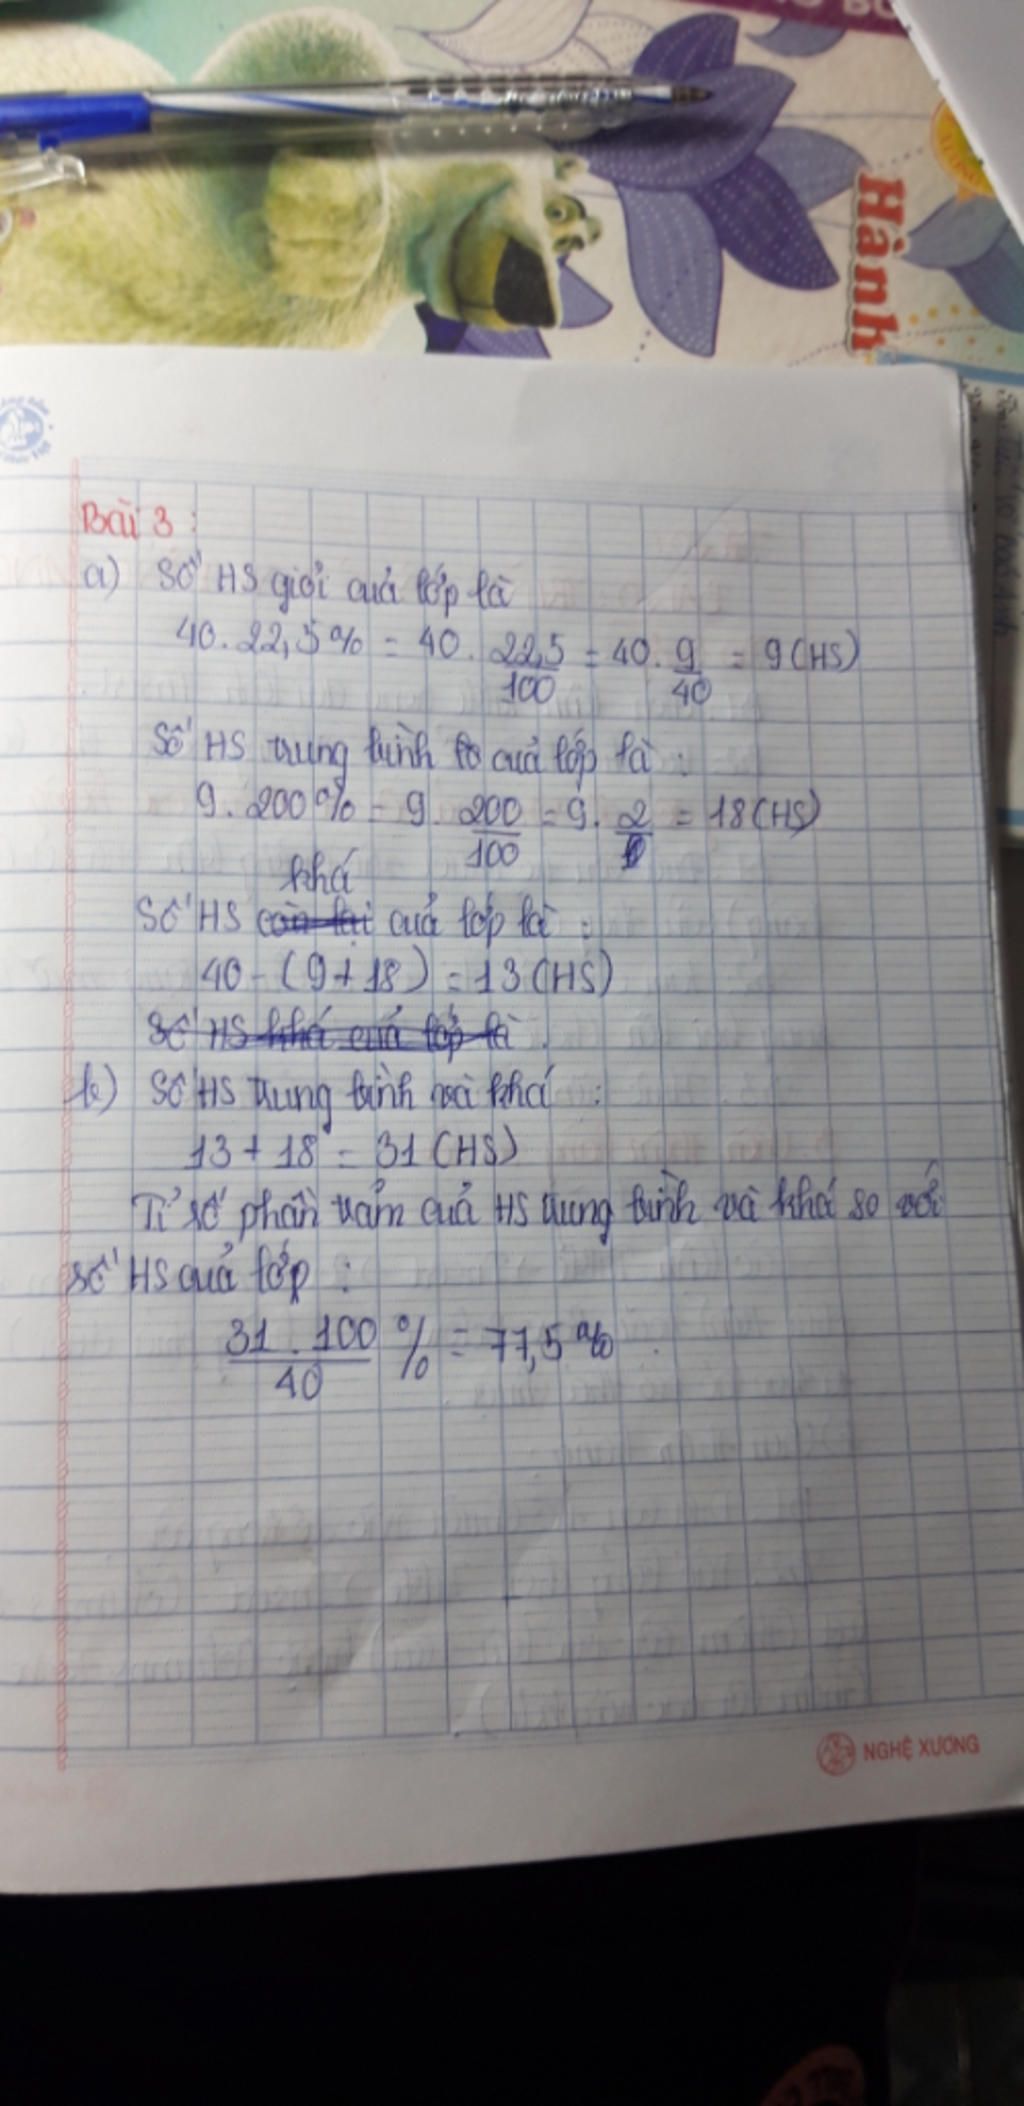 Hành
Bài 3 :
a) Số HS giỏi của lớp là
40 . 22,5% = 40 . 22,5/100 = 40 . 9/40 = 9 (HS)
Số HS trung bình của lớp là :
9 . 200% = 9 . 200/100 = 9 . 2/1 = 18 (HS)
khá
Số HS còn lại của lớp là :
40 - (9 + 18) = 13 (HS)
Số HS khá của lớp là
b) Số HS trung bình và khá :
13 + 18 = 31 (HS)
Tỉ số phần trăm của HS trung bình và khá so với
số HS của lớp :
31 . 100/40 % = 77,5%
NGHỆ XƯƠNG